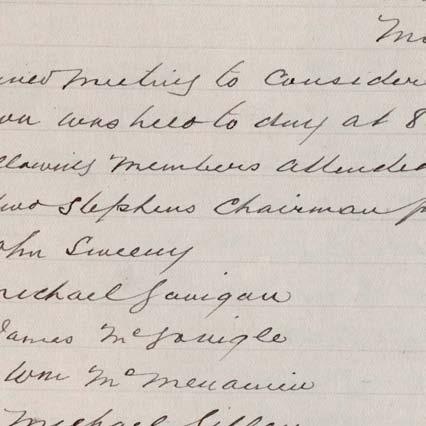 Mo
ined meeting to consider
was held to day at 8
llowing members attended
Stephens Chairman p
ohn Sweeny
Michael Gavigan
James McGonigle
Wm McMenamin
Michael